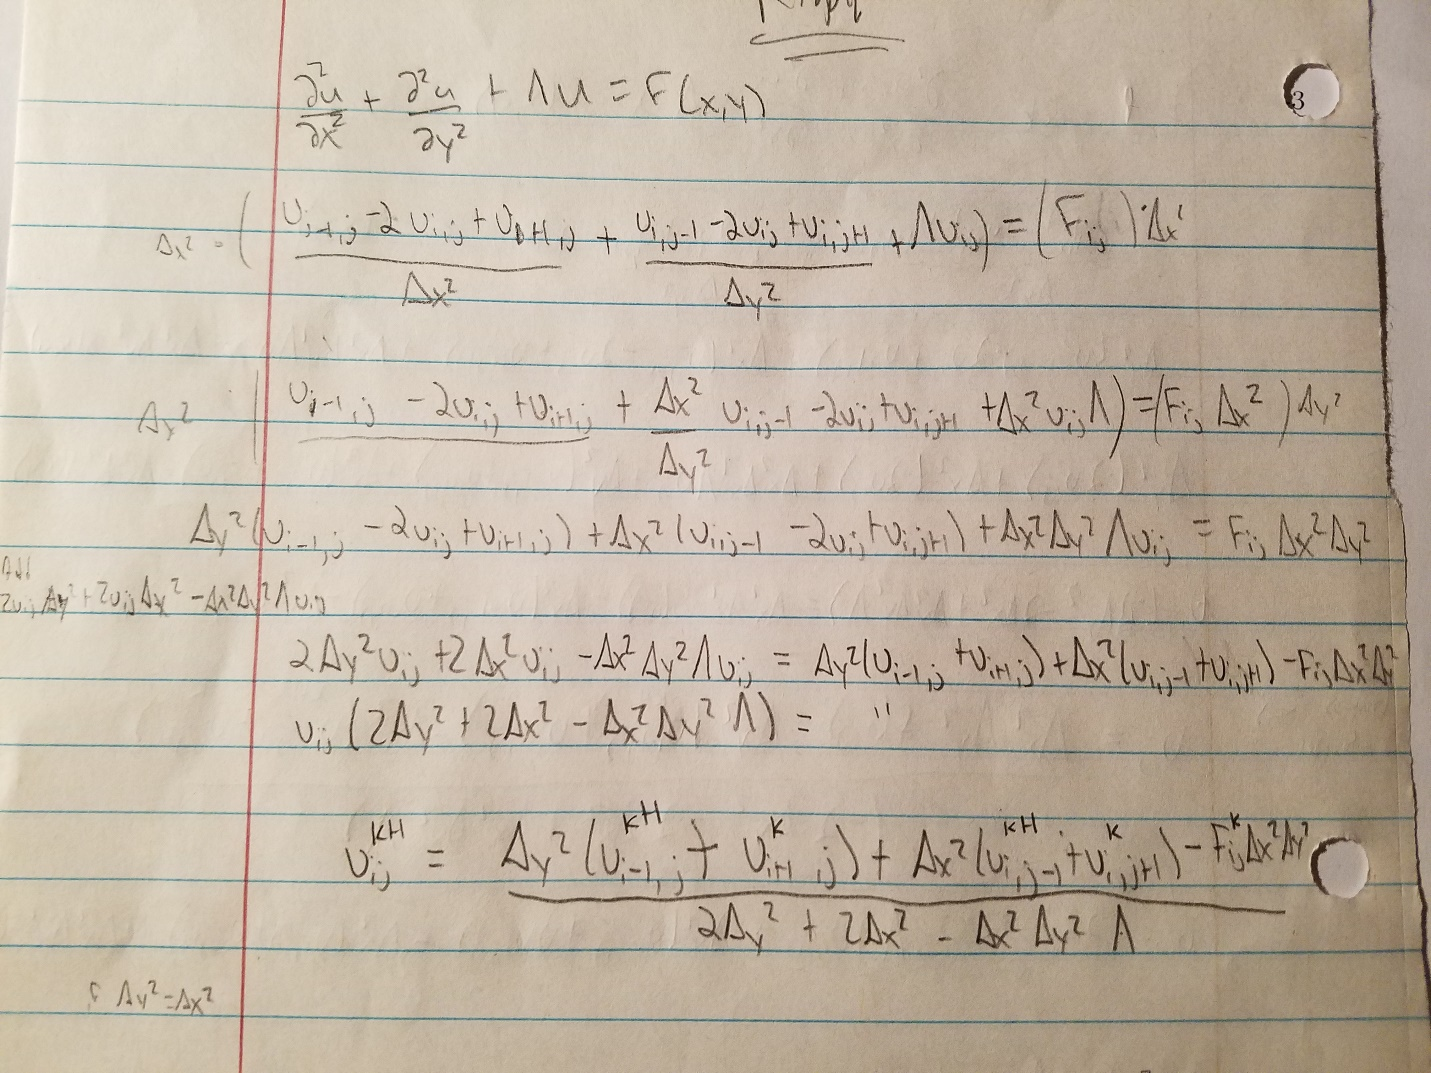 3
∂²u/∂x² + ∂²u/∂y² + Λu = F(x,y)
Δx² · ( (u_{i-1,j} - 2u_{i,j} + u_{i+1,j})/Δx² + (u_{i,j-1} - 2u_{ij} + u_{i,j+1})/Δy² + Λu_{ij} ) = (F_{ij}) · Δx²
Δx² ( u_{i-1,j} - 2u_{ij} + u_{i+1,j} + Δx²/Δy² u_{i,j-1} - 2u_{ij} + u_{i,j+1} + Δx² u_{ij} Λ ) = (F_{ij} Δx²) Δy²
Δy²(u_{i-1,j} - 2u_{ij} + u_{i+1,j}) + Δx²(u_{i,j-1} - 2u_{ij} + u_{i,j+1}) + Δx²Δy² Λu_{ij} = F_{ij} Δx²Δy²
Add
2u_{ij} Δy² + 2u_{ij} Δx² - Δx²Δy² Λu_{ij}
2Δy²u_{ij} + 2Δx²u_{ij} - Δx²Δy²Λu_{ij} = Δy²(u_{i-1,j} + u_{i+1,j}) + Δx²(u_{i,j-1} + u_{i,j+1}) - F_{ij}Δx²Δy²
u_{ij} (2Δy² + 2Δx² - Δx²Δy² Λ) = "
u_{ij}^{k+1} = (Δy²(u_{i-1,j}^{k+1} + u_{i+1,j}^{k}) + Δx²(u_{i,j-1}^{k+1} + u_{i,j+1}^{k}) - F_{ij}^{k}Δx²Δy²) / (2Δy² + 2Δx² - Δx²Δy² Λ)
Δy² = Δx²